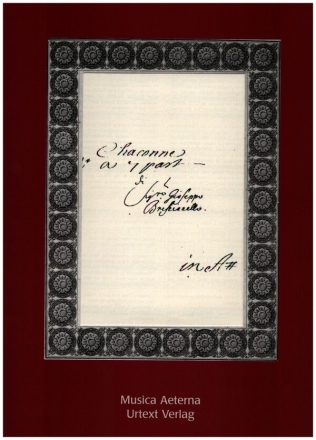 Chaconne
a 4 part
di
Sig.ro Gioseppo
Brescianello.
in A#
Musica Aeterna
Urtext Verlag